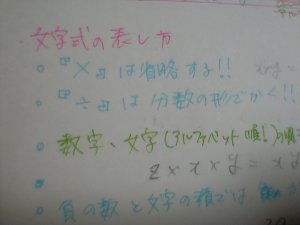 文字式の表し方
• 『×』は省略する!!
• 『÷』は分数の形でかく!!
• 数字、文字(アルファベット順!)の順
z × x × y = x y
• 負の数と文字の積では